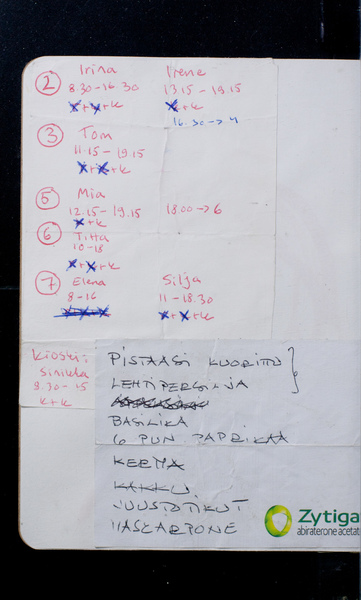 2 Irina Irene
8.30-16.30 13.15-19.15
x+x+k x+k
16.30→4
3 Tom
11.15-19.15
x+x+k
5 Mia
12.15-19.15 18.00→6
x+k
6 Titta
10-18
x+x+k
7 Elena Silja
8-16 11-18.30
x+x+k
Kioski:
Sinikka
9.30-15
k+k
PISTAASI KUORITTU
LEHTIPERSILJA
BASILIKA
6 PUN PAPRIKAA
KERMA
KAKKU
JUUSTOTIKUT
MASCARPONE
Zytiga
abiraterone acetat